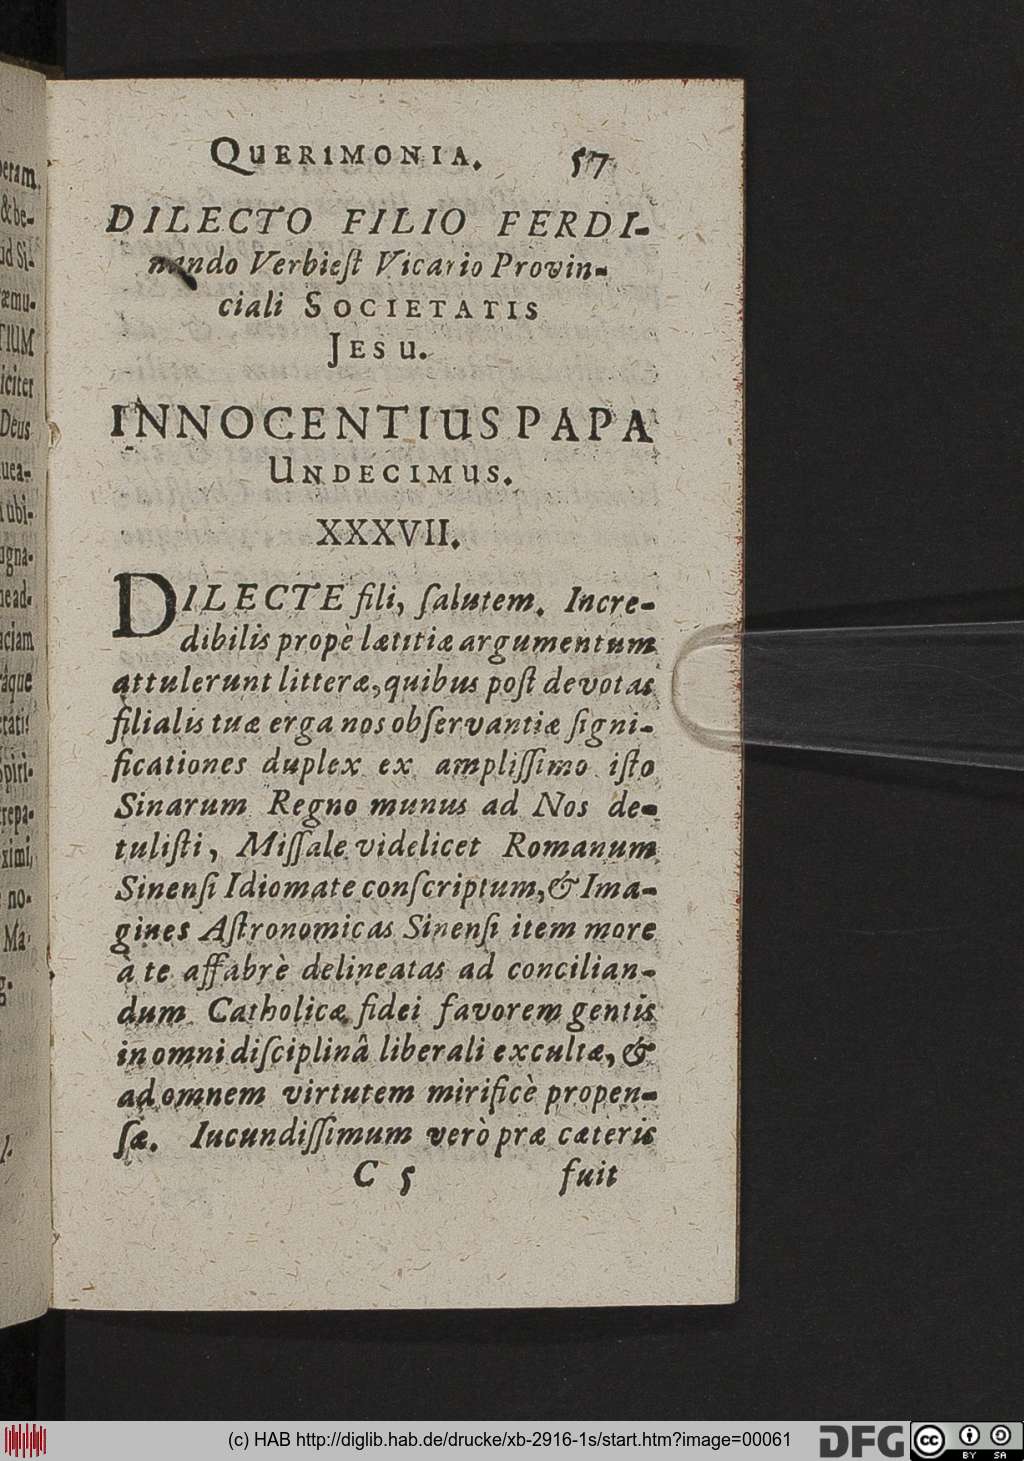 QUERIMONIA. 57
DILECTO FILIO FERDI-
nando Verbieſt Vicario Provin-
ciali SOCIETATIS
JESU.
INNOCENTIUS PAPA
UNDECIMUS.
XXXVII.
DILECTE fili, ſalutem. Incre-
dibilis propè lætitiæ argumentum
attulerunt litteræ, quibus poſt devotas
filialis tuæ erga nos obſervantiæ ſigni-
ficationes duplex ex ampliſſimo iſto
Sinarum Regno munus ad Nos de-
tuliſti, Miſſale videlicet Romanum
Sinenſi Idiomate conſcriptum, & Ima-
gines Aſtronomicas Sinenſi item more
à te affabrè delineatas ad concilian-
dum Catholicæ fidei favorem gentis
in omni diſciplinâ liberali excultæ, &
ad omnem virtutem mirificè propen-
ſæ. Iucundiſſimum verò præ cæteris
C 5 fuit
(c) HAB http://diglib.hab.de/drucke/xb-2916-1s/start.htm?image=00061
DFG
cc
BY SA